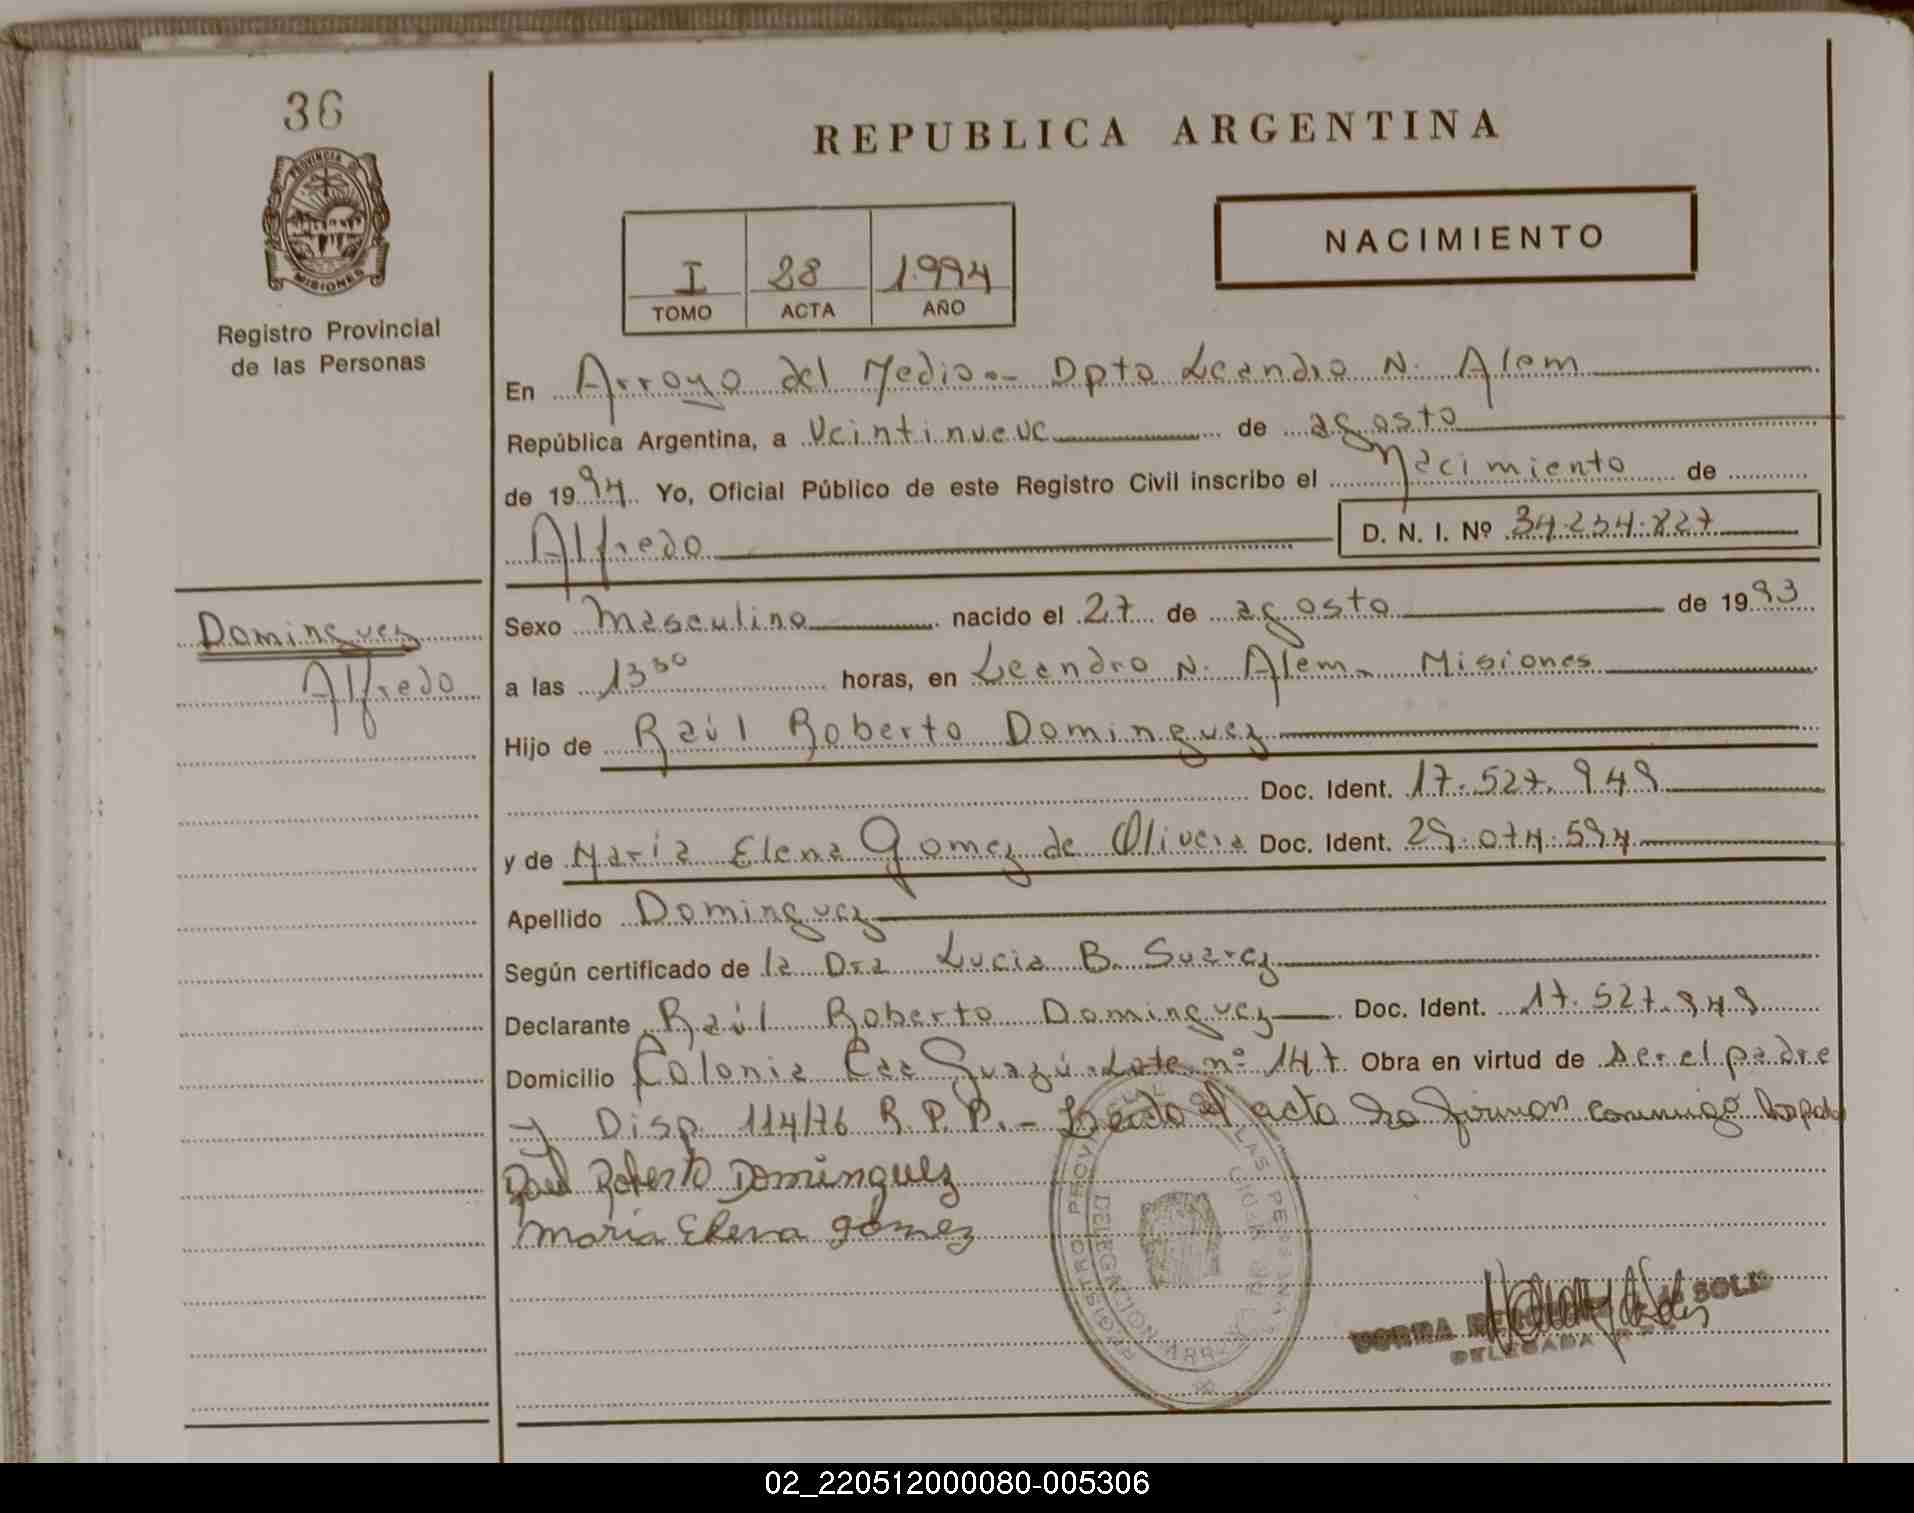 36
PROVINCIA D
MISIONES
Registro Provincial
de las Personas
Dominguez
Alfredo
REPUBLICA ARGENTINA
I 28 1.994
TOMO ACTA AÑO
NACIMIENTO
En Arroyo del Medio.- Dpto Leandro N. Alem
República Argentina, a Veintinueve de agosto
de 1994. Yo, Oficial Público de este Registro Civil inscribo el Nacimiento de
Alfredo D. N. I. Nº 34.254.827
Sexo Masculino nacido el 27 de agosto de 1993
a las 13 30 horas, en Leandro N. Alem - Misiones
Hijo de Raúl Roberto Dominguez
Doc. Ident. 17.527.949
y de María Elena Gomez de Olivera Doc. Ident. 29.074.594
Apellido Dominguez
Según certificado de la Dra Lucia B. Suarez
Declarante Raúl Roberto Dominguez Doc. Ident. 17.527.949
Domicilio Colonia Caa Guazú - Lote nº 147 Obra en virtud de ser el padre
y Disp. 114/76 R. P. P. - Leido el acto lo firman conmigo los padres
Raul Roberto Dominguez
Maria Elena gomez
REGISTRO PROVINCIAL DE LAS PERSONAS
DELEGACION ARROYO
NORMA SOLIS
DELEGADA
02_220512000080-005306